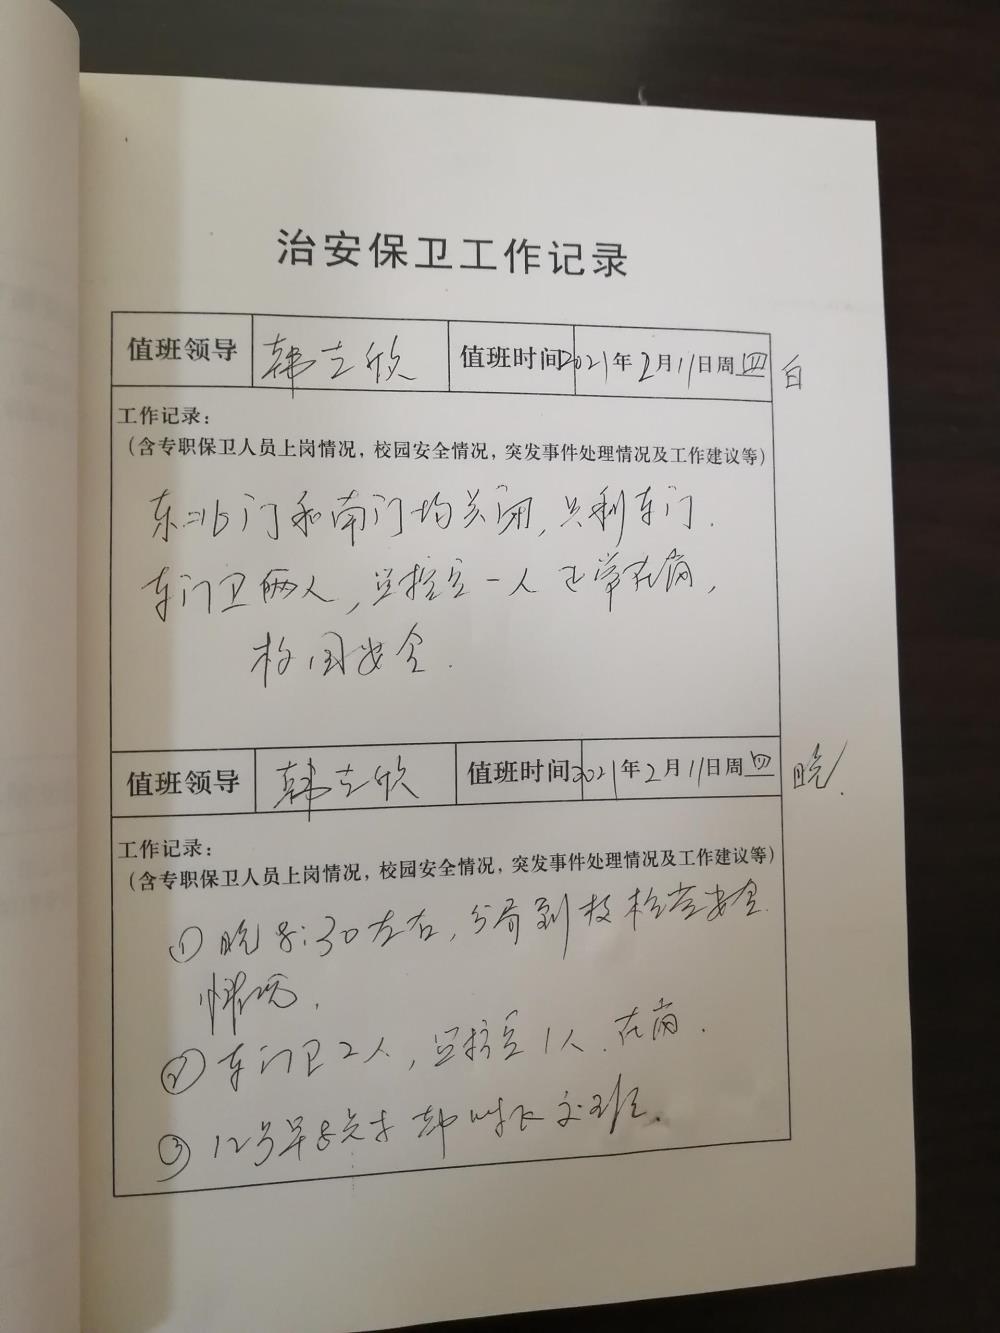 治安保卫工作记录
值班领导 韩立欣 值班时间 2021年2月11日周四 白
工作记录：
（含专职保卫人员上岗情况，校园安全情况，突发事件处理情况及工作建议等）
东门和南门均关闭，只剩车门．
车门卫俩人，监控室一人正常在岗，
校园安全．
值班领导 韩立欣 值班时间 2021年2月11日周四 晚．
工作记录：
（含专职保卫人员上岗情况，校园安全情况，突发事件处理情况及工作建议等）
① 晚8:30左右，分局到校检查安全
情况．
② 车门卫2人，监控室1人．在岗．
③ 12号早8点才 交班．